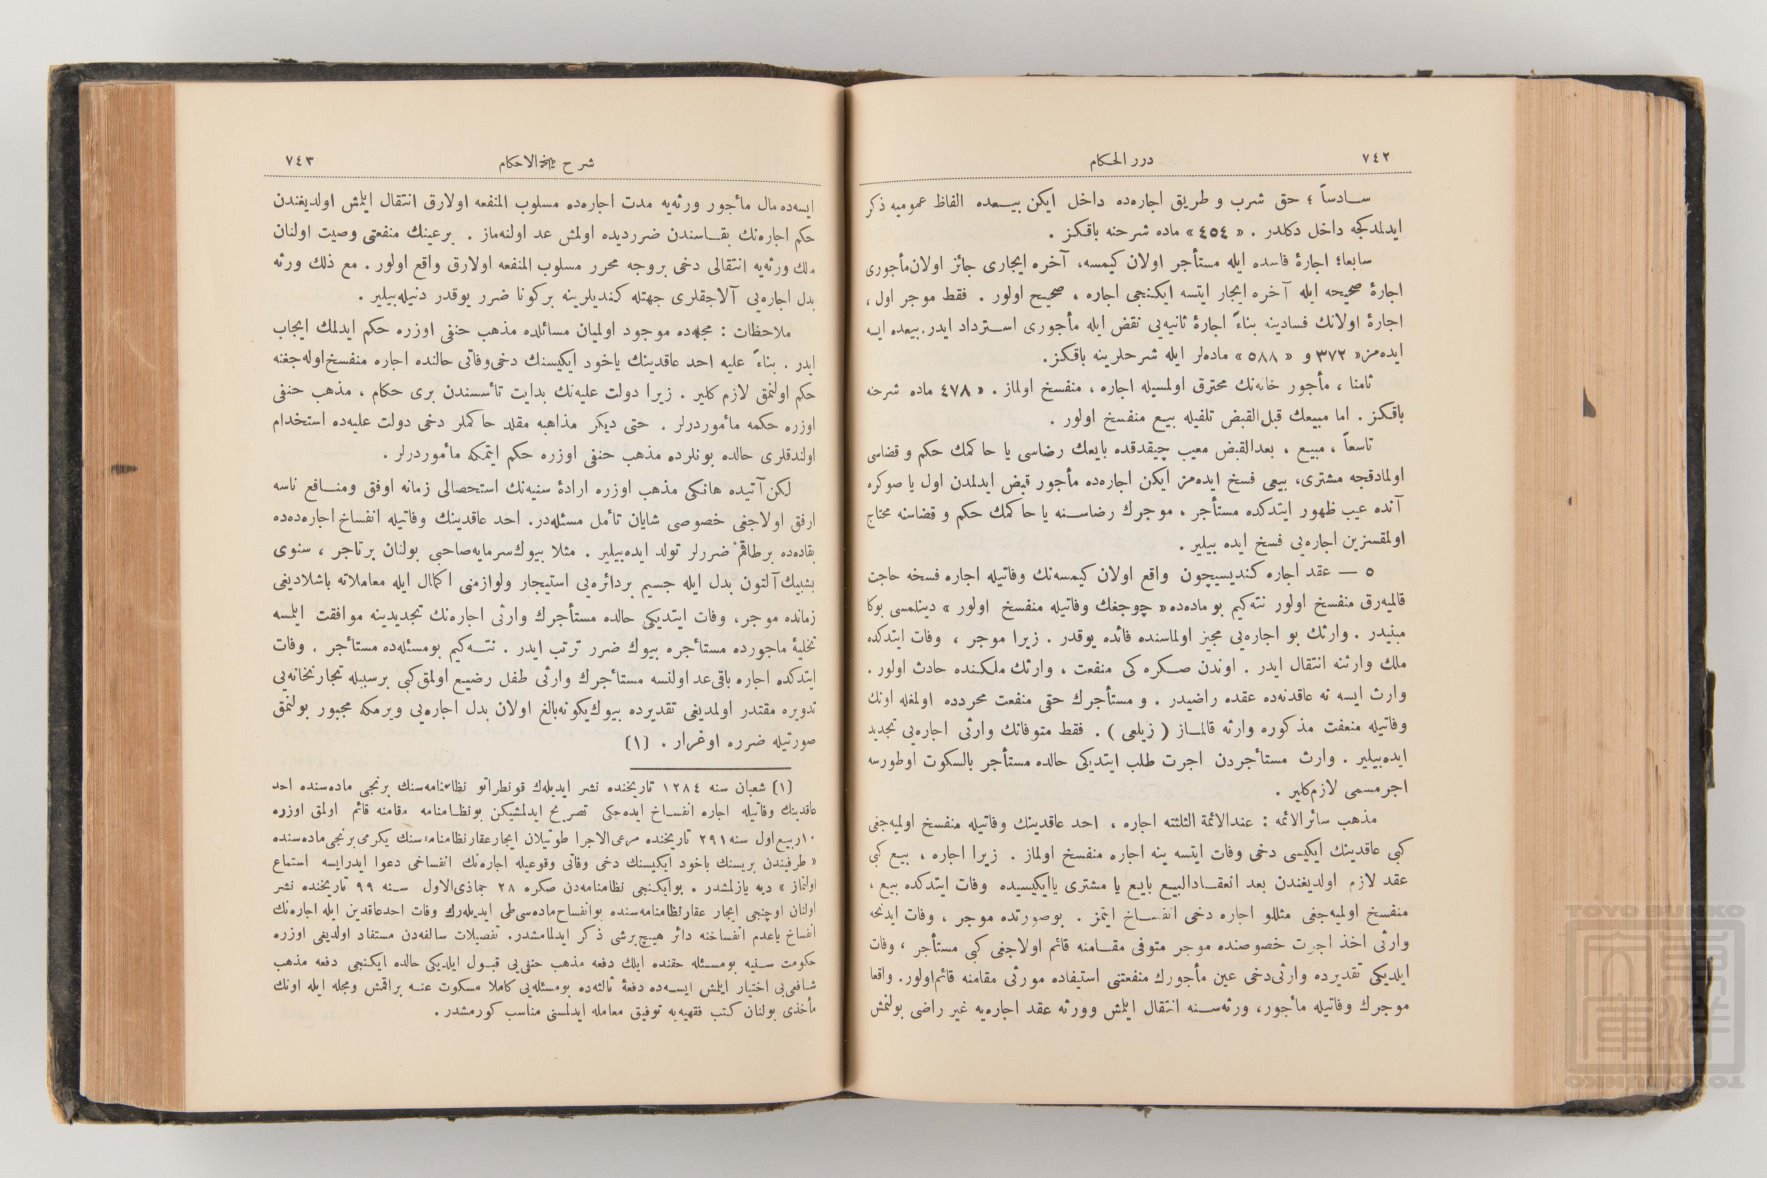 ٧٤٢
درر الحكام
ســادساً ؛ حق شرب و طريق اجارهده داخل ايكن بيــعده الفاظ عموميه ذكر
ايدلمدكجه داخل دكلدر . « ٤٥٤ » ماده شرحنه باقكز .
سابعا؛ اجارهٔ فاسده ايله مستأجر اولان كيمسه، آخره ايجارى جائز اولان مأجورى
اجارهٔ صحيحه ايله آخره ايجار ايتسه ايكنجى اجاره ، صحيح اولور . فقط موجر اول ،
اجارهٔ اولانك فسادينه بناءً اجارهٔ ثانيهيى نقض ايله مأجورى اســترداد ايدر. بيعده ايسه
ايدهمز« ٣٧٢ و « ٥٨٨ » مادهلر ايله شرحلرينه باقكز .
ثامنا ، مأجور خانهنك محترق اولمسيله اجاره ، منفسخ اولماز . « ٤٧٨ ماده شرحنه
باقكز . اما مبيعك قبل القبض تلفيله بيع منفسخ اولور .
تاسعاً ، مبيع ، بعدالقبض معيب چيقدقده بايعك رضاسى يا حاكمك حكم و قضاسى
اولمادقجه مشترى، بيعى فسخ ايدهمز ايكن اجارهده مأجور قبض ايدلمدن اول يا صوكره
آنده عيب ظهور ايتدكده مستأجر ، موجرك رضاســنه يا حاكمك حكم و قضاسنه محتاج
اولمقسزين اجارهيى فسخ ايده بيلير .
٥ — عقد اجاره كنديسيچون واقع اولان كيمسهنك وفاتيله اجاره فسخه حاجت
قالميهرق منفسخ اولور نتهكيم بو مادهده « چوجغك وفاتيله منفسخ اولور » دينلمسى بوكا
مبنيدر . وارثك بو اجارهيى مجيز اولماسنده فائده يوقدر . زيرا موجر ، وفات ايتدكده
ملك وارثنه انتقال ايدر . اوندن صــكره كى منفعت ، وارثك ملكنده حادث اولور .
وارث ايسه نه عاقدنهده عقده راضيدر . و مستأجرك حقى منفعت مجردده اولمغله اونك
وفاتيله منعفت مذكوره وارثه قالمــاز ( زيلعى ) . فقط متوفانك وارثى اجارهيى تجديد
ايدهبيلير . وارث مستأجردن اجرت طلب ايتديكى حالده مستأجر بالسكوت اوطورسه
اجر مسمى لازم كلير .
مذهب سائرالائمه : عندالائمة الثلثه اجاره ، احد عاقدينك وفاتيله منفسخ اولميهجغى
كبى عاقدينك ايكيسى دخى وفات ايتسه ينه اجاره منفسخ اولماز . زيرا اجاره ، بيع كبى
عقد لازم اولديغندن بعد انعقــادالبيع بايع يا مشترى ياايكيسيده وفات ايتدكده بيع ،
منفسخ اولميهجغى مثللو اجاره دخى انفســاخ ايتمز . بوصورتده موجر ، وفات ايدنجه
وارثى اخذ اجرت خصوصنده موجر متوفى مقــامنه قائم اولاجغى كبى مستأجر ، وفات
ايلديكى تقديرده وارثى دخى عين مأجورك منفعتنى استيفاده مورثى مقامنه قائم اولور . واقعا
موجرك وفاتيله مأجور ، ورثهســنه انتقال ايلمش وورثه عقد اجارهيه غير راضى بولنمش
شرح مجلة الاحكام
٧٤٣
ايسهده مال مأجور ورثهيه مدت اجارهده مسلوب المنفعه اولارق انتقال ايلمش اولديغندن
حكم اجارهنك بقــاسندن ضررديده اولمش عد اولنهماز . برعينك منفعتى وصيت اولنان
ملك ورثهيه انتقالى دخى بروجه محرر مسلوب المنفعه اولارق واقع اولور . مع ذلك ورثه
بدل اجارهيى آلاجقلرى جهتله كنديلرينه بركونا ضرر يوقدر دنيله بيلير .
ملاحظات : مجلهده موجود اولميان مسائلده مذهب حنفى اوزره حكم ايدلمك ايجاب
ايدر . بناءً عليه احد عاقدينك ياخود ايكيسنك دخى وفاتى حالنده اجاره منفسخ اولهجغنه
حكم اولنمق لازم كلير . زيرا دولت عليهنك بدايت تأسسندن برى حكام ، مذهب حنفى
اوزره حكمه مأموردرلر . حتى ديكر مذاهبه مقلد حاكملر دخى دولت عليهده استخدام
اولندقلرى حالده بونلرده مذهب حنفى اوزره حكم ايتمكه مأموردرلر .
لكن آتيده هانكى مذهب اوزره ارادهٔ سنيهنك استحصالى زمانه اوفق ومنــافع ناسه
ارفق اولاجغى خصوصى شايان تأمل مسئلهدر. احد عاقدينك وفاتيله انفساخ اجارهدهده
بقادهده برطاقم ضررلر تولد ايدهبيلير . مثلا بيوك سرمايه صاحبى بولنان برتاجر ، سنوى
بشبيك آلتون بدل ايله جسيم بردائرهيى استيجار ولوازمنى اكمال ايله معاملاته باشلاديغى
زمانده موجر ، وفات ايتديكى حالده مستأجرك وارثى اجارهنك تجديدينه موافقت ايلمسه
تخليهٔ ماجورده مستأجره بيوك ضرر ترتب ايدر . نتــهكيم بومسئلهده مستأجر . وفات
ايتدكده اجاره باقى عد اولنسه مستأجرك وارثى طفل رضيع اولمق كبى برسببله تجارتخانهيى
تدويره مقتدر اولمديغى تقديرده بيوك يكونه بالغ اولان بدل اجارهيى ويرمكه مجبور بولنمق
صورتيله ضرره اوغرار . (١)
(١) شعبان سنه ١٢٨٤ تاريخنده نشر ايديلهك قونطراتو نظامنامهسنك برنجى مادهسنده احد
عاقدينك وفاتيله اجاره انفســاخ ايدهجكى تصريح ايدلمشيكن بونظــامنامه مقامنه قائم اولمق اوزره
١٠ ربيع اول سنه ٢٩١ تاريخنده مرعى الاجرا طوتيلان ايجار عقار نظامنامهسنك يكرمى برنجى مادهسنده
« طرفيندن بريسنك ياخود ايكيسنك دخى وفاتى وقوعيله اجارهنك انفساخى دعوا ايدرايسه استماع
اولنماز » ديه يازلمشدر . بوايكنجى نظامنامهدن صكره ٢٨ جماذى الاول ســنه ٩٩ تاريخنده نشر
اولنان اوچنجى ايجار عقارنظامنامهسنده بوانفساح مادهسى طى ايديلهرك وفات احدعاقدين ايله اجارهنك
انفساخ ياعدم انفساخنه دائر هيچ برشى ذكر ايدلمامشدر. تفصيلات سالفهدن مستفاد اولديغى اوزره
حكومت ســنيه بومسئله حقنده ايلك دفعه مذهب حنفىيى قبــول ايلديكى حالده ايكنجى دفعه مذهب
شــافعىيى اختيار ايلمش ايســهده دفعهٔ ثالثهده بومسئلهيى كاملا مسكوت عنــه براقمش ومجله ايله اونك
مأخذى بولنان كتب فقهيهيه توفيق معامله ايدلمسنى مناسب كورمشدر .
TOYO BUNKO